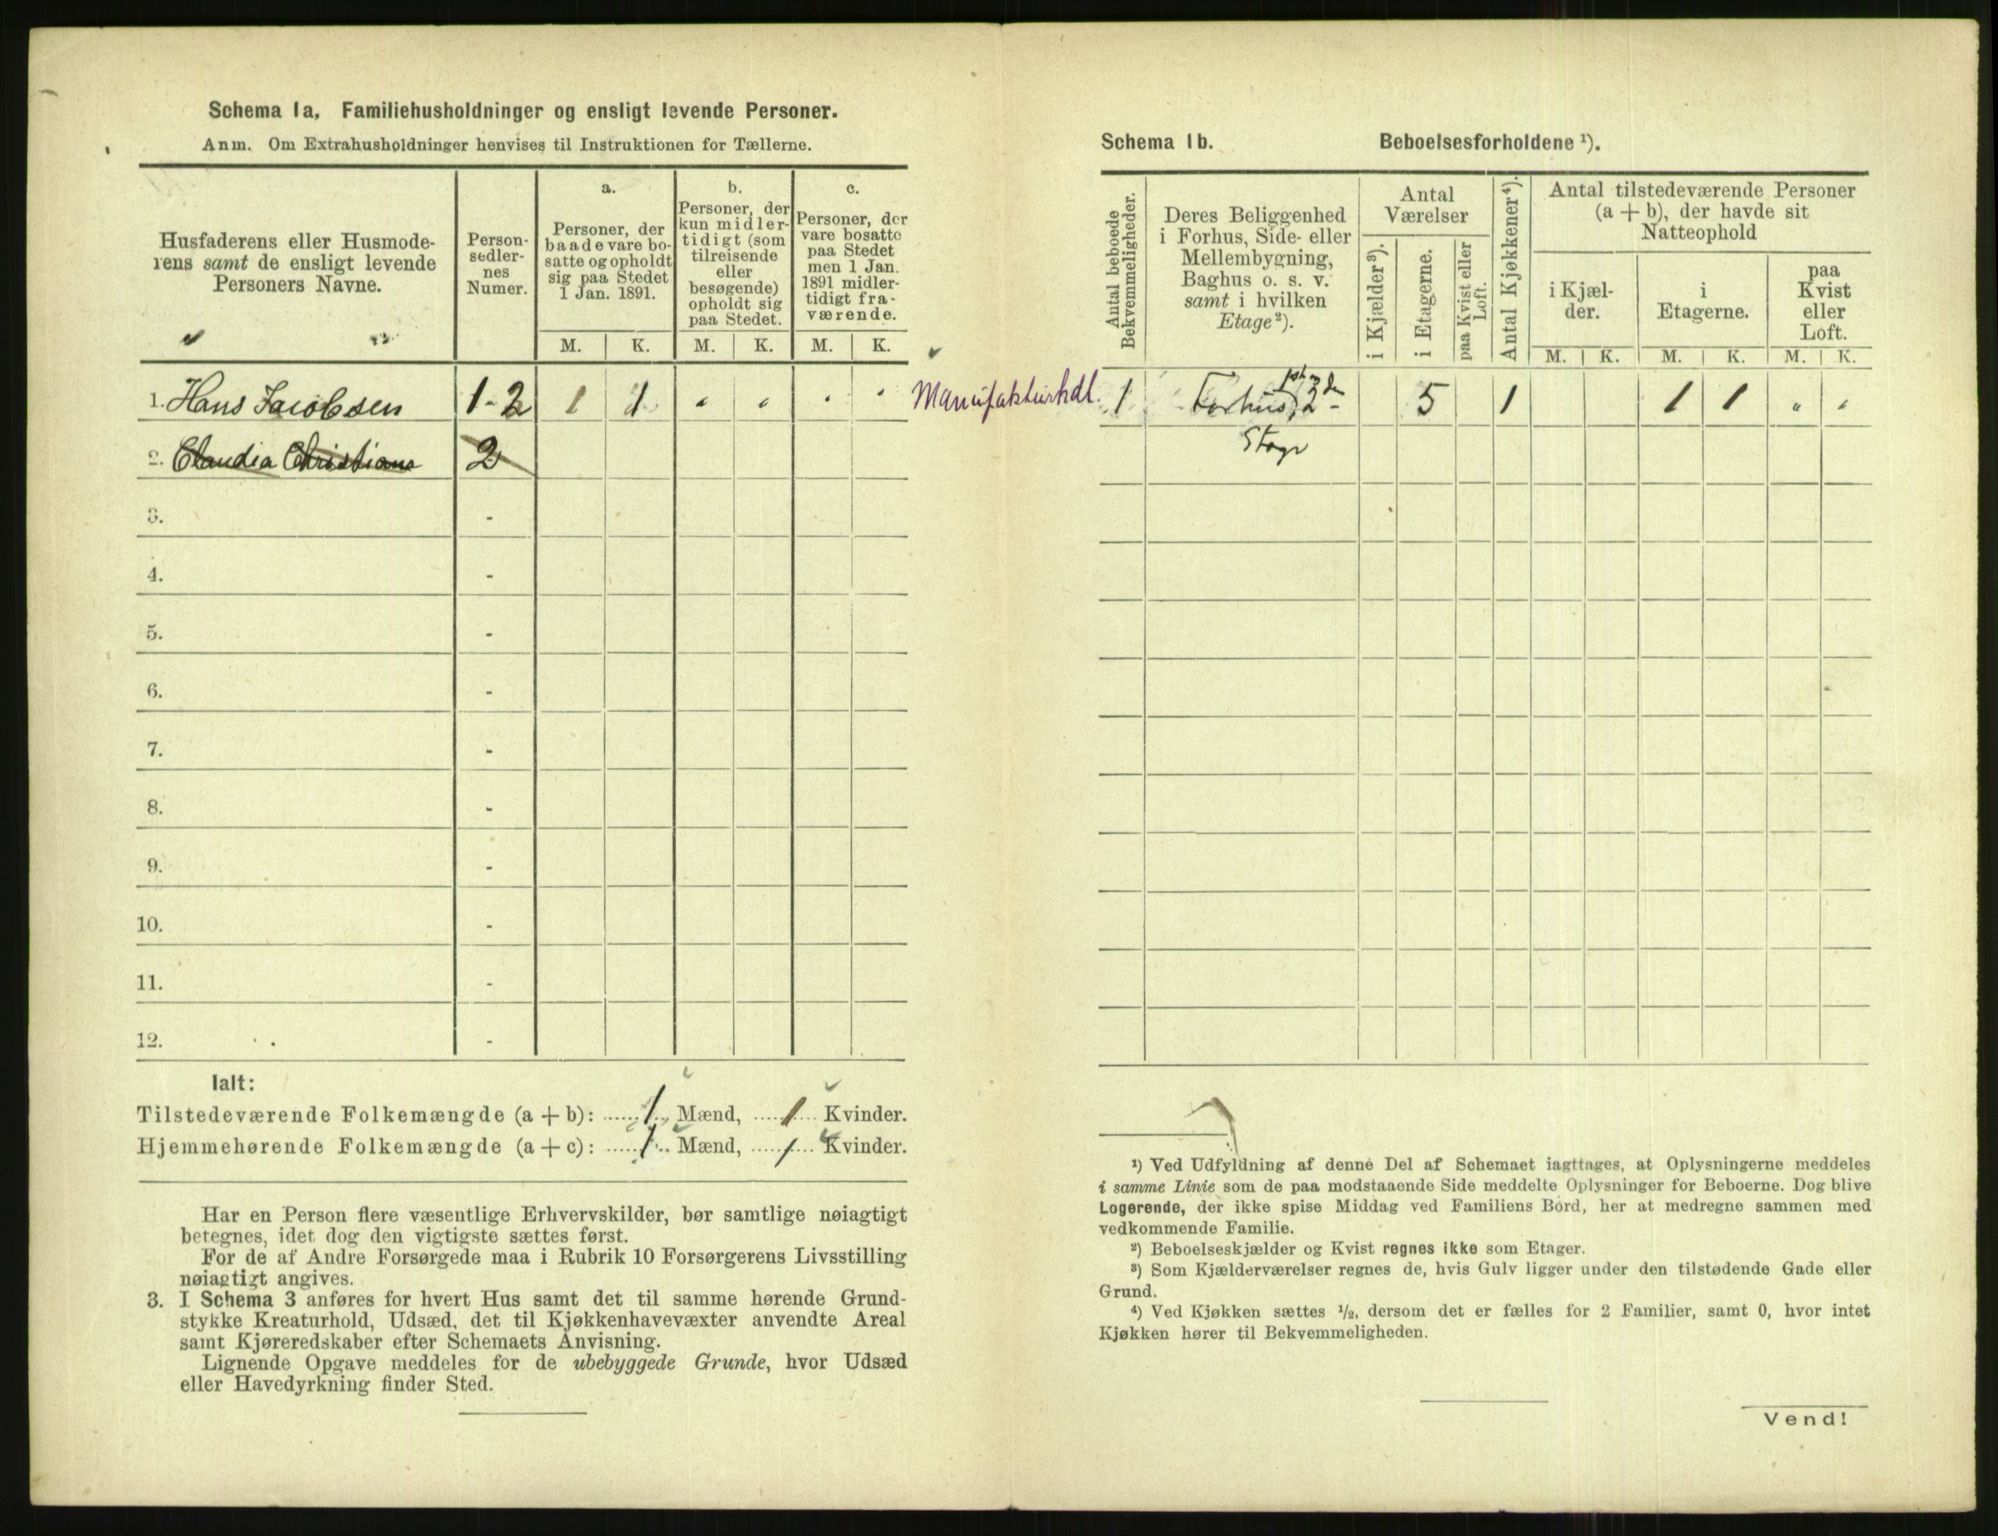 Schema 1a. Familiehusholdninger og ensligt levende Personer.
Anm. Om Extrahusholdninger henvises til Instruktionen for Tællerne.
Husfaderens eller Husmode-
rens samt de ensligt levende
Personers Navne.
Person-
sedler-
nes
Numer.
a.
Personer, der
baade vare bo-
satte og opholdt
sig paa Stedet
1 Jan. 1891.
b.
Personer, der
kun midler-
tidigt (som
tilreisende
eller
besøgende)
opholdt sig
paa Stedet.
c.
Personer, der
vare bosatte
paa Stedet
men 1 Jan.
1891 midler-
tidigt fra-
værende.
M. K. M. K. M. K.
1. Hans Jacobsen 1-2 1 1 " " " "
2. Claudia Christiana 2
3. -
4. -
5. -
6. -
7. -
8. -
9. -
10. -
11. -
12. -
Ialt:
Tilstedeværende Folkemængde (a + b): ...1... Mænd, ...1... Kvinder.
Hjemmehørende Folkemængde (a + c): ...1... Mænd, ...1... Kvinder.
Har en Person flere væsentlige Erhvervskilder, bør samtlige nøiagtigt
betegnes, idet dog den vigtigste sættes først.
For de af Andre Forsørgede maa i Rubrik 10 Forsørgerens Livsstilling
nøiagtigt angives.
3. I Schema 3 anføres for hvert Hus samt det til samme hørende Grund-
stykke Kreaturhold, Udsæd, det til Kjøkkenhavevæxter anvendte Areal
samt Kjøreredskaber efter Schemaets Anvisning.
Lignende Opgave meddeles for de ubebyggede Grunde, hvor Udsæd
eller Havedyrkning finder Sted.
Schema 1b. Beboelsesforholdene ¹).
Antal beboede
Bekvemmeligheder.
Deres Beliggenhed
i Forhus, Side- eller
Mellembygning,
Baghus o. s. v.
samt i hvilken
Etage ²).
Antal
Værelser
i Kjælder ³).
i Etagerne.
paa Kvist eller
Loft.
Antal Kjøkkener ⁴).
Antal tilstedeværende Personer
(a + b), der havde sit
Natteophold
i Kjæl-
der.
i
Etagerne.
paa
Kvist
eller
Loft.
M. K. M. K. M. K.
Manufakturhdl. 1 Forhus, 1st og 2den 5 1 1 1 " "
Etage
¹) Ved Udfyldning af denne Del af Schemaet iagttages, at Oplysningerne meddeles
i samme Linie som de paa modstaaende Side meddelte Oplysninger for Beboerne. Dog blive
Logerende, der ikke spise Middag ved Familiens Bord, her at medregne sammen med
vedkommende Familie.
²) Beboelseskjælder og Kvist regnes ikke som Etager.
³) Som Kjælderværelser regnes de, hvis Gulv ligger under den tilstødende Gade eller
Grund.
⁴) Ved Kjøkken sættes ½, dersom det er fælles for 2 Familier, samt 0, hvor intet
Kjøkken hører til Bekvemmeligheden.
Vend!